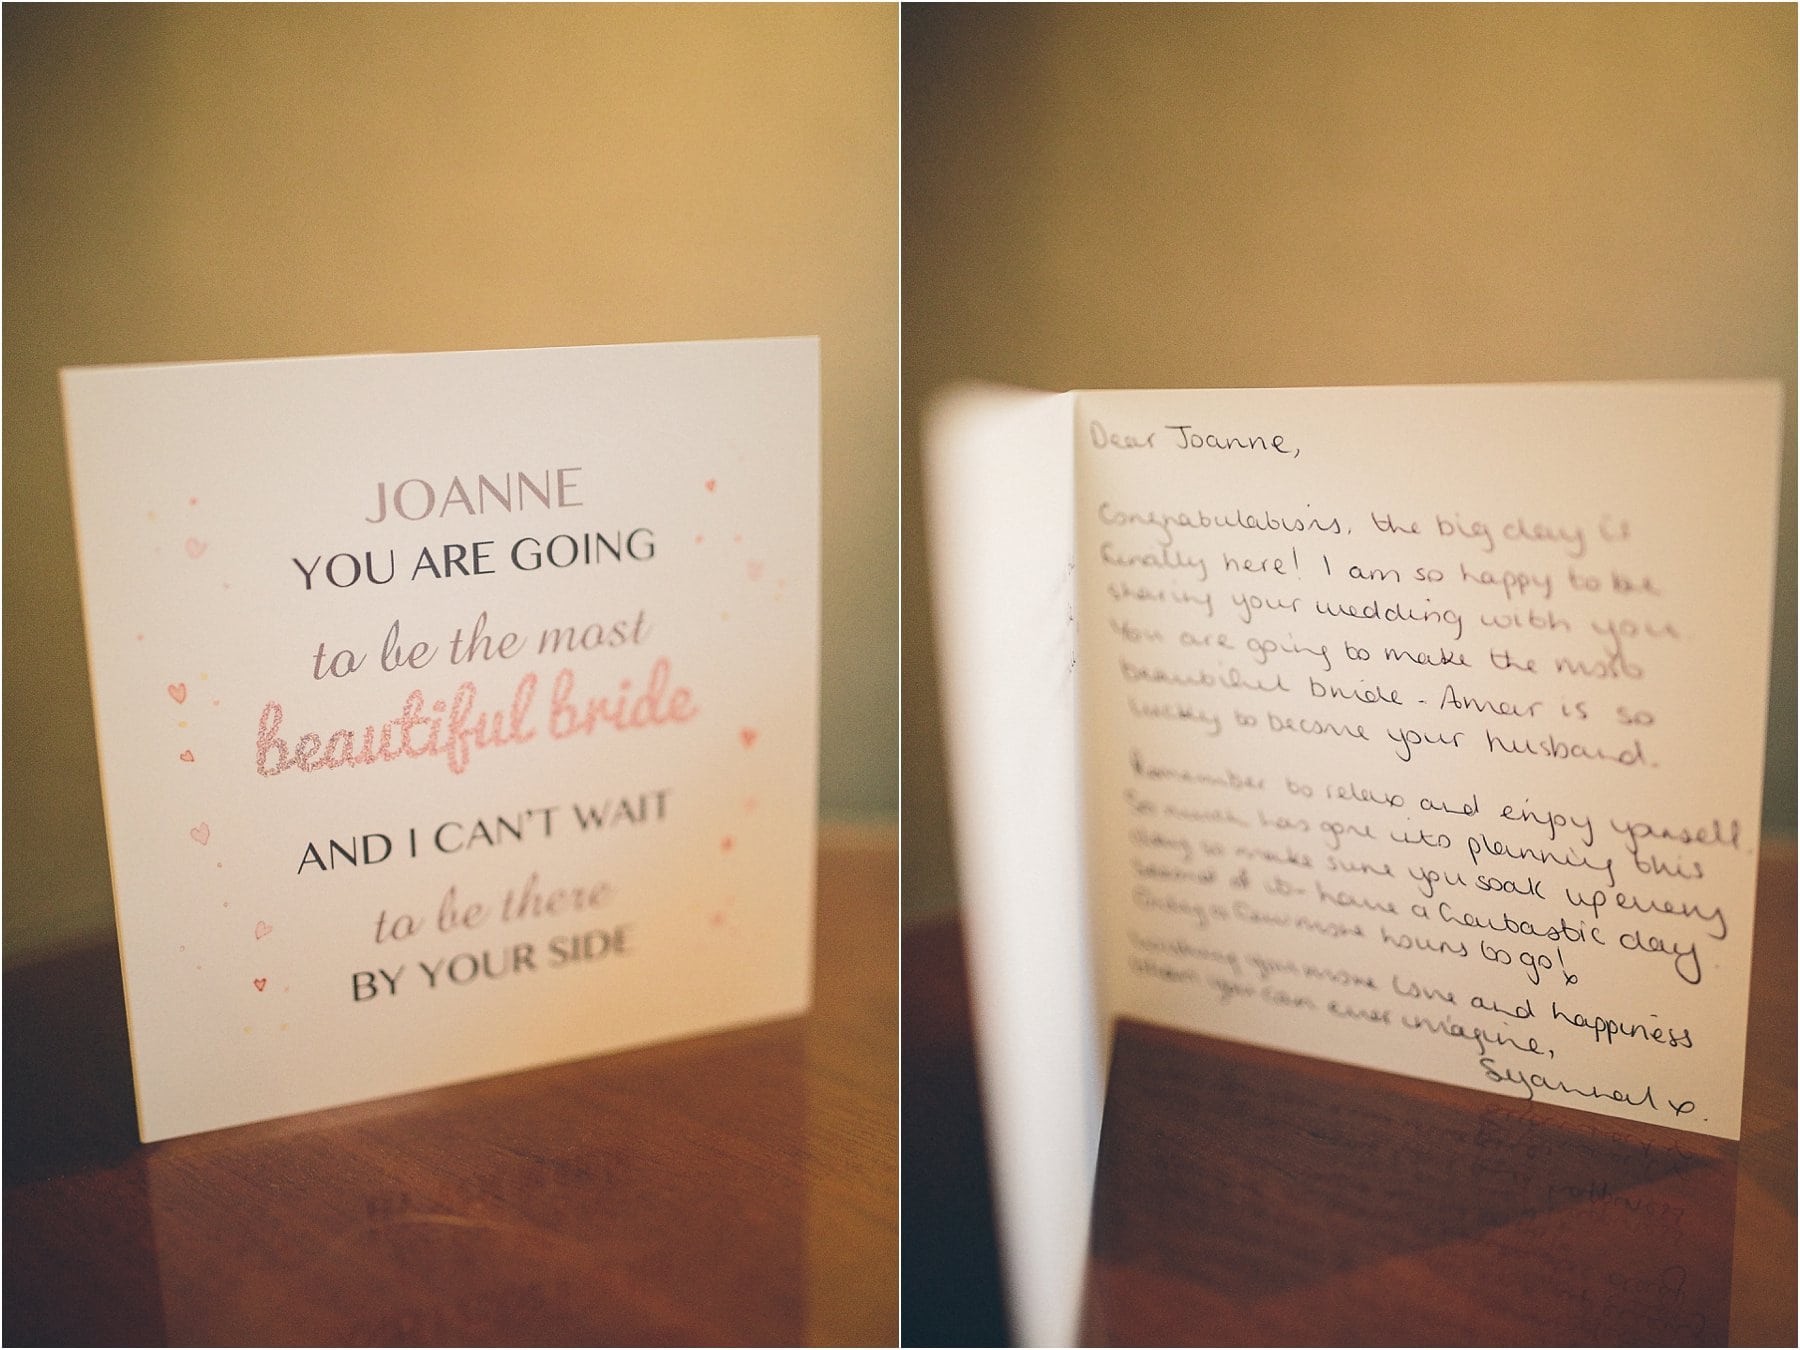 JOANNE
YOU ARE GOING
to be the most
beautiful bride
AND I CAN'T WAIT
to be there
BY YOUR SIDE
Dear Joanne,
Congratulations, the big day is
finally here! I am so happy to be
sharing your wedding with you.
You are going to make the most
beautiful bride - Amar is so
lucky to become your husband.
Remember to relax and enjoy yourself.
So much has gone into planning this
day so make sure you soak up every
second of it - have a fantastic day
Only a few more hours to go! x
Wishing you more love and happiness
than you can ever imagine,
x.